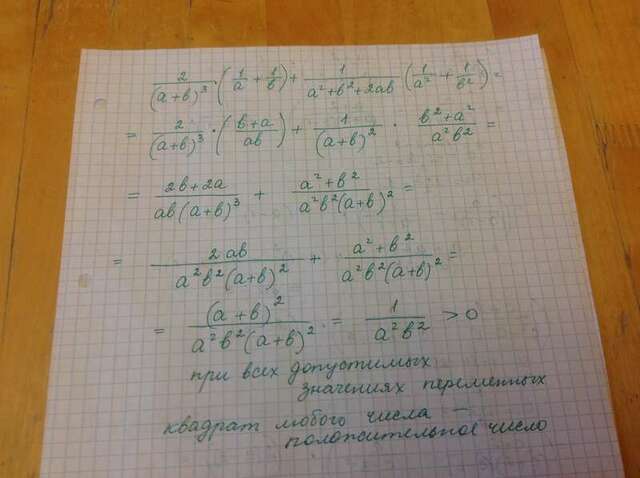 2/(a+b)³ · (1/a + 1/b) + 1/(a²+b²+2ab) · (1/a² + 1/b²) =
= 2/(a+b)³ · ((b+a)/ab) + 1/(a+b)² · (b²+a²)/(a²b²) =
= (2b+2a)/(ab(a+b)³) + (a²+b²)/(a²b²(a+b)²) =
= 2ab/(a²b²(a+b)²) + (a²+b²)/(a²b²(a+b)²) =
= (a+b)²/(a²b²(a+b)²) = 1/(a²b²) > 0
при всех допустимых
значениях переменных
квадрат любого числа –
положительное число